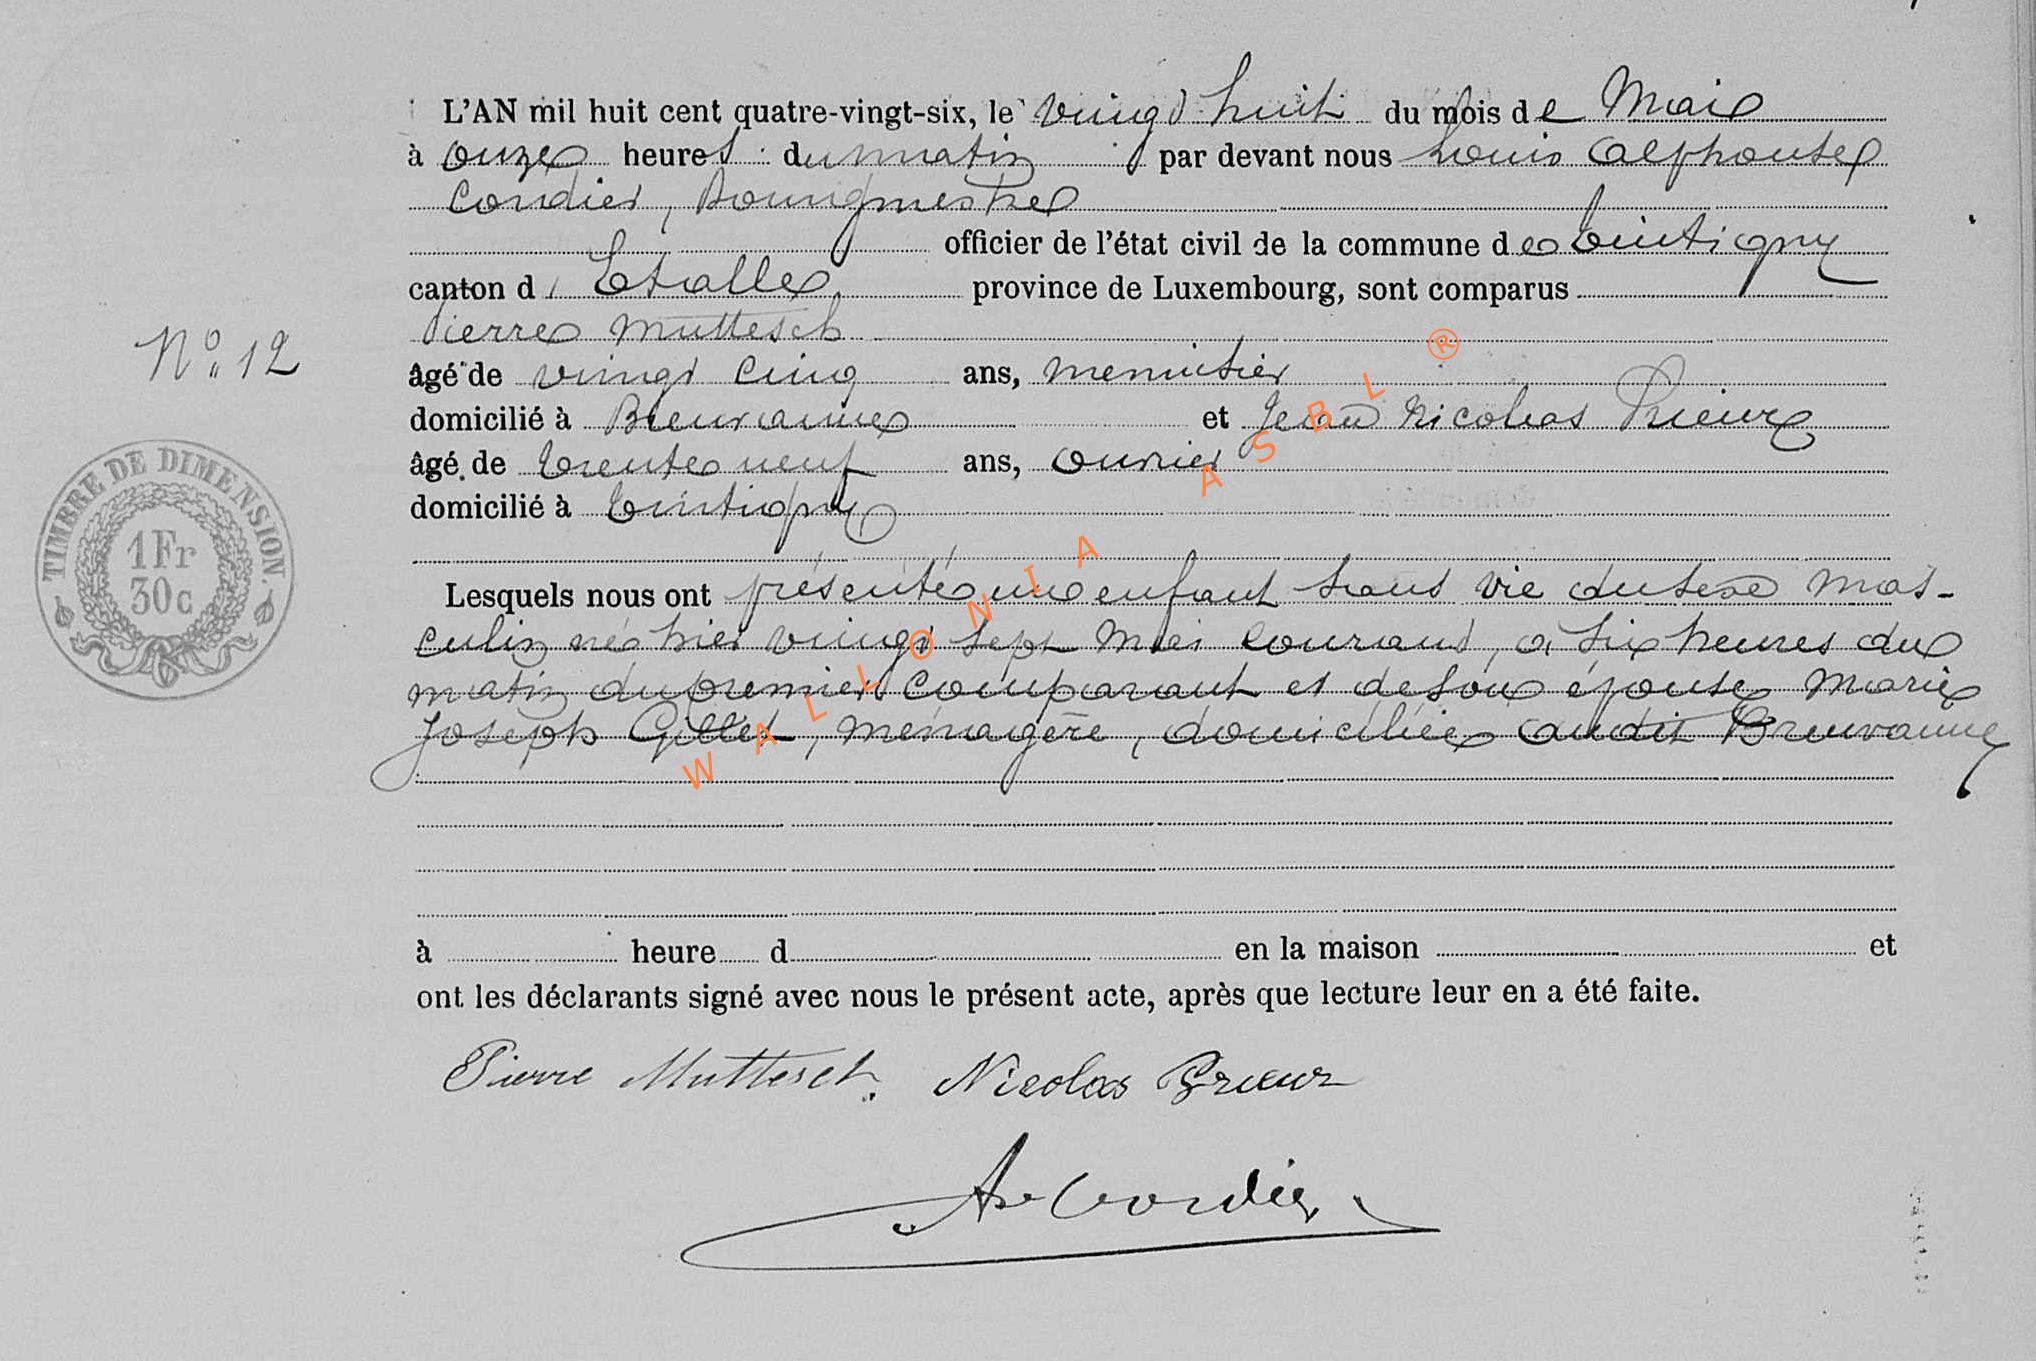 L'AN mil huit cent quatre-vingt-six, le vingt huit du mois de Mai
à onze heures du matin par devant nous Louis Alphonse
Cordier, Bourgmestre
officier de l'état civil de la commune de Tintigny
canton d' Etalle, province de Luxembourg, sont comparus
Pierre Muttesch
N° 12
âgé de vingt cinq ans, menuisier
domicilié à Breuvanne et Jean Nicolas Prieur
âgé de trente neuf ans, ouvrier
domicilié à Tintigny
TIMBRE DE DIMENSION.
1 Fr
30 c
Lesquels nous ont présenté un enfant sans vie du sexe mas-
culin né hier vingt sept Mai courant, à six heures du
matin du premier comparant et de son épouse Marie
Joseph Gillet, ménagère, domiciliée audit Breuvanne
à heure d en la maison et
ont les déclarants signé avec nous le présent acte, après que lecture leur en a été faite.
Pierre Muttesch. Nicolas Prieur
A Cordier
WALLONIA ASBL ®